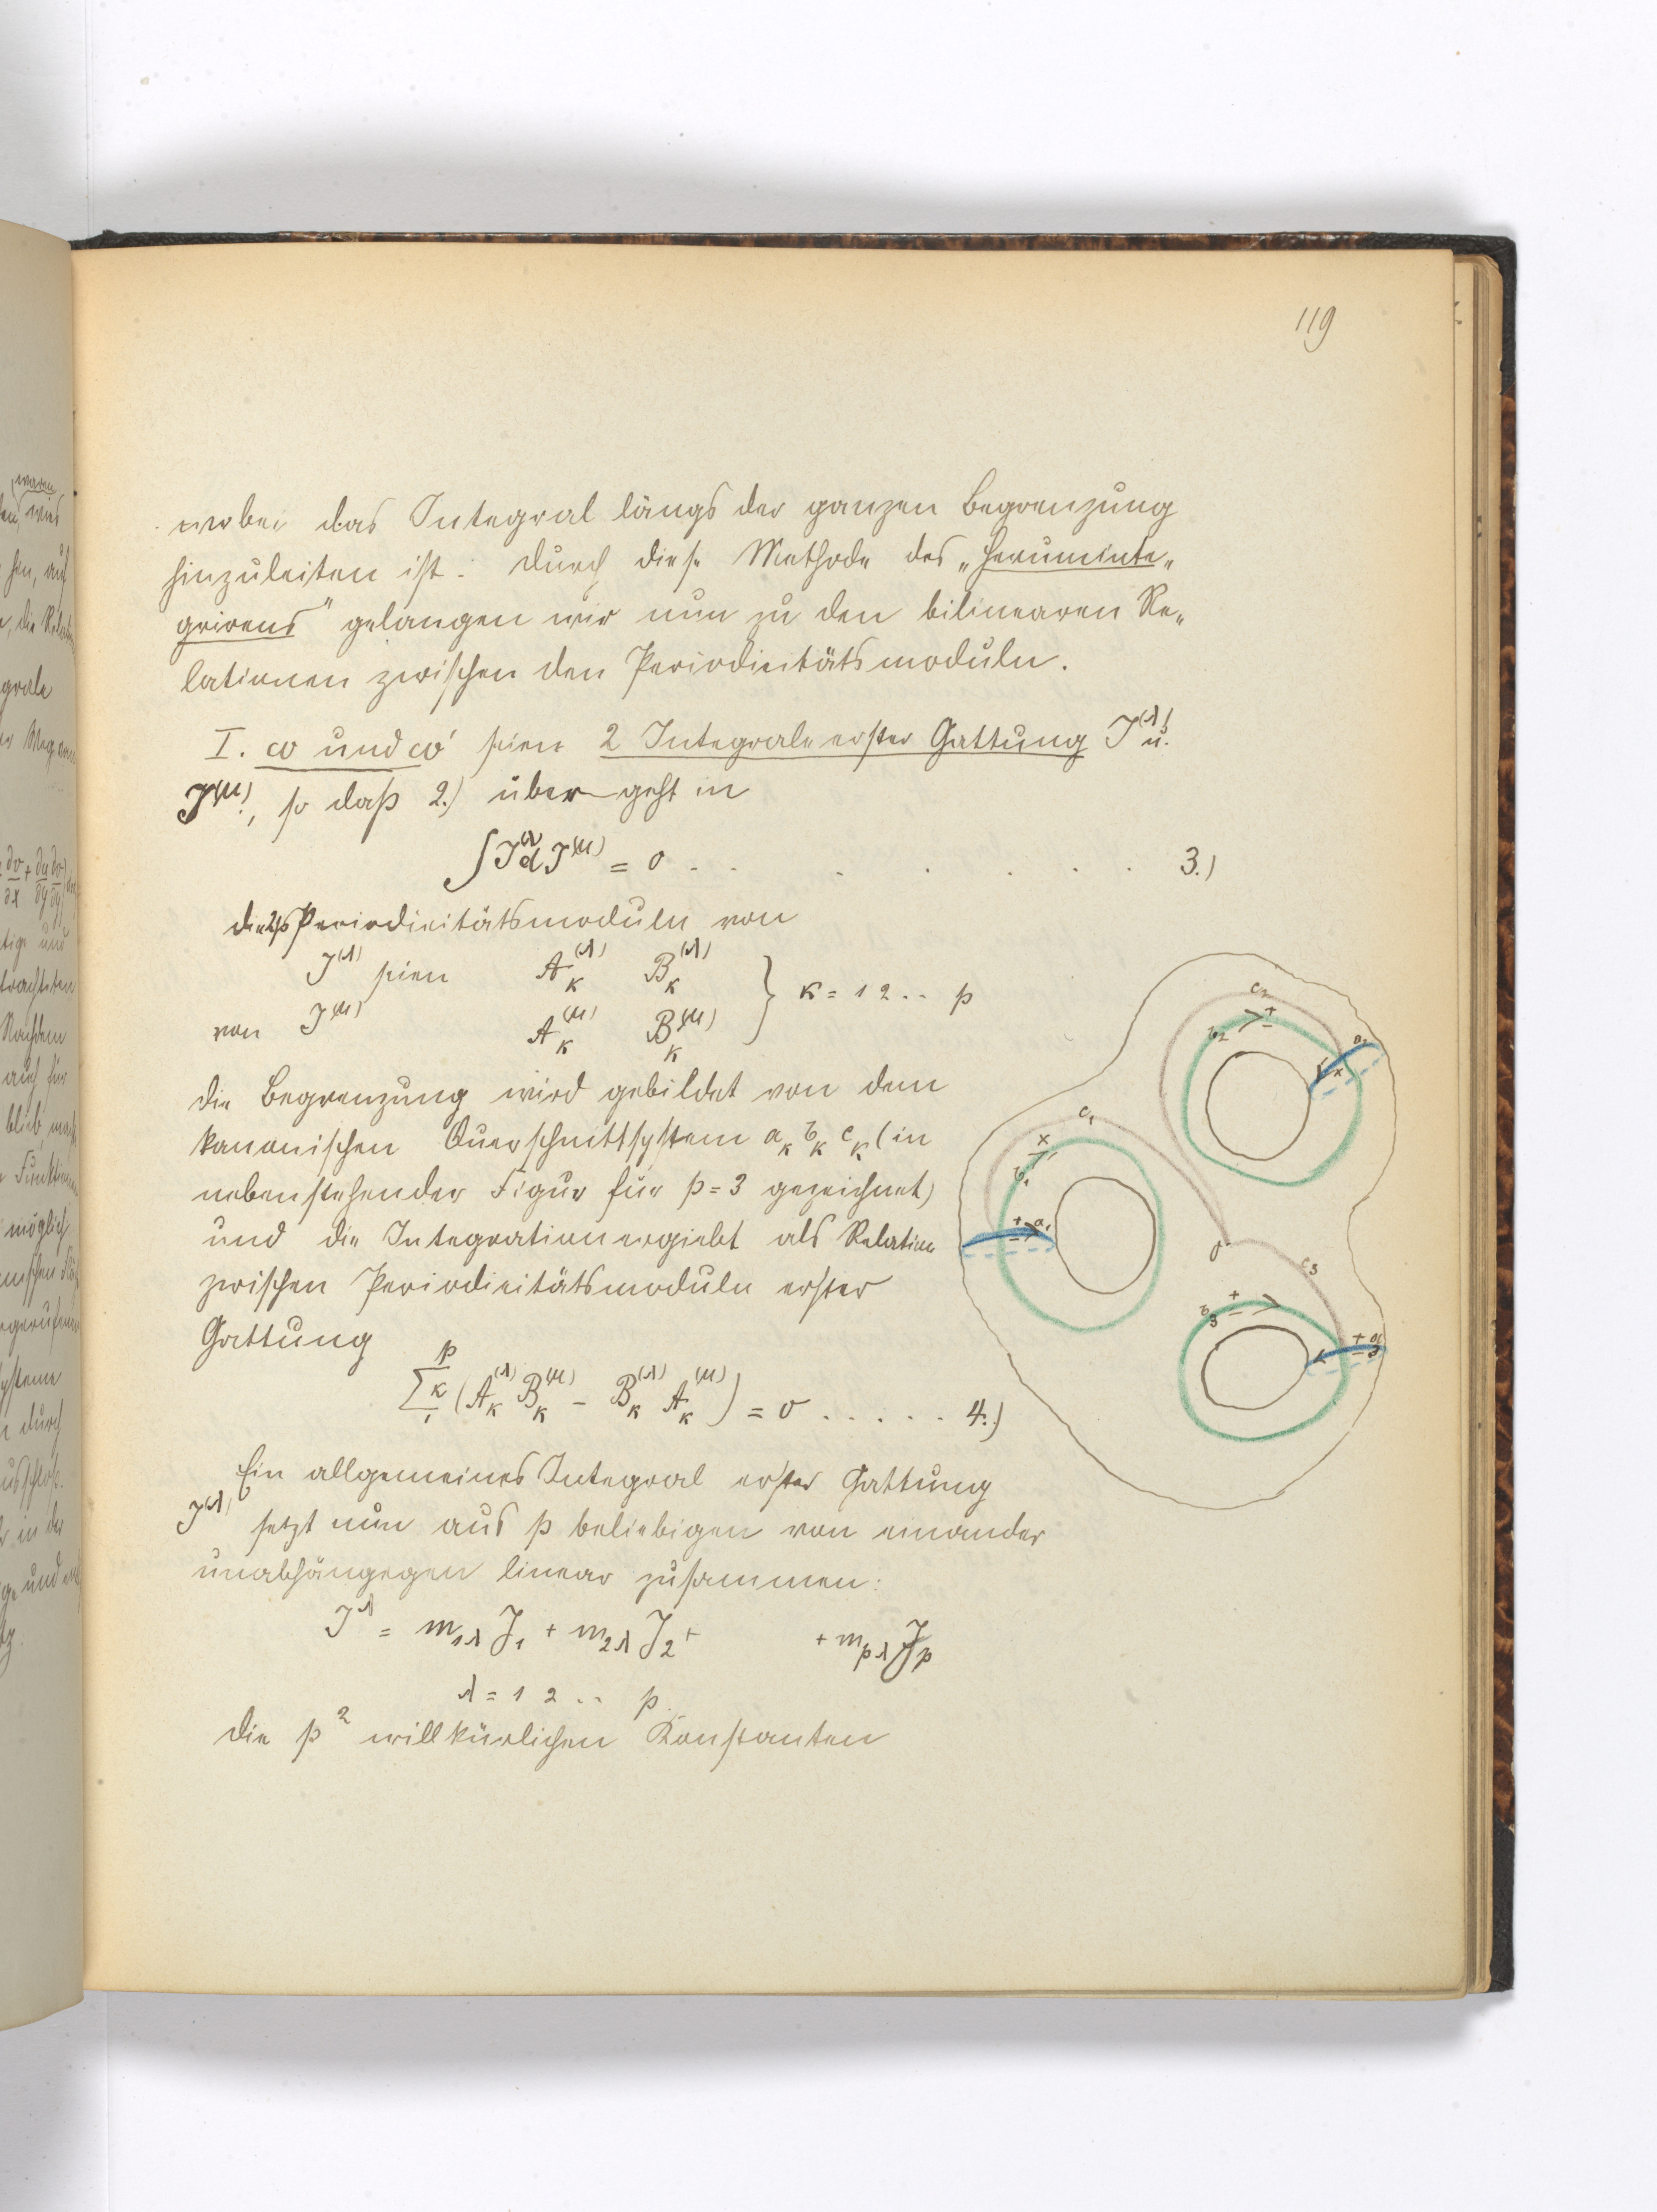 119
wobei das Integral längs der ganzen Begrenzung
hinzuleiten ist. Durch diese Methode des „Heruminte„
grirens" gelangen wir nun zu den bilinearen Re„
lationen zwischen den Periodicitätsmoduln.
I. ω und ω' seien 2 Integrale erster Gattung J^(λ) u.
J^(μ), so daß 2.) über geht in
∫J^(λ) d J^(μ) = 0 . . . . . . . . 3.)
die 2p Periodicitätsmoduln von
J^(λ) seien A_κ^(λ) B_κ^(λ)
von J^(μ) A_κ^(μ) B_κ^(μ) } κ = 1 2 .. p
die Begrenzung wird gebildet von dem
kanonischen Querschnittsystem a_κ b_κ c_κ (in
nebenstehender Figur für p = 3 gezeichnet)
und die Integration ergiebt als Relation
zwischen Periodicitätsmoduln erster
Gattung
∑_1^p κ (A_κ^(λ) B_κ^(μ) − B_κ^(λ) A_κ^(μ)) = 0 . . . . . 4.)
Ein allgemeines Integral erster Gattung
J^(λ) setzt nun aus p beliebigen von einander
unabhängegen linear zusammen:
J^λ = m_1λ J_1 + m_2λ J_2 + + m_pλ J_p
λ = 1 2 .. p
die p^2 willkürlichen Konstanten
c_2
b_2
+
−
a_2
+
c_1
+
−
b_1
+
−
a_1
0
c_3
b_3
+
−
+
−
a_3